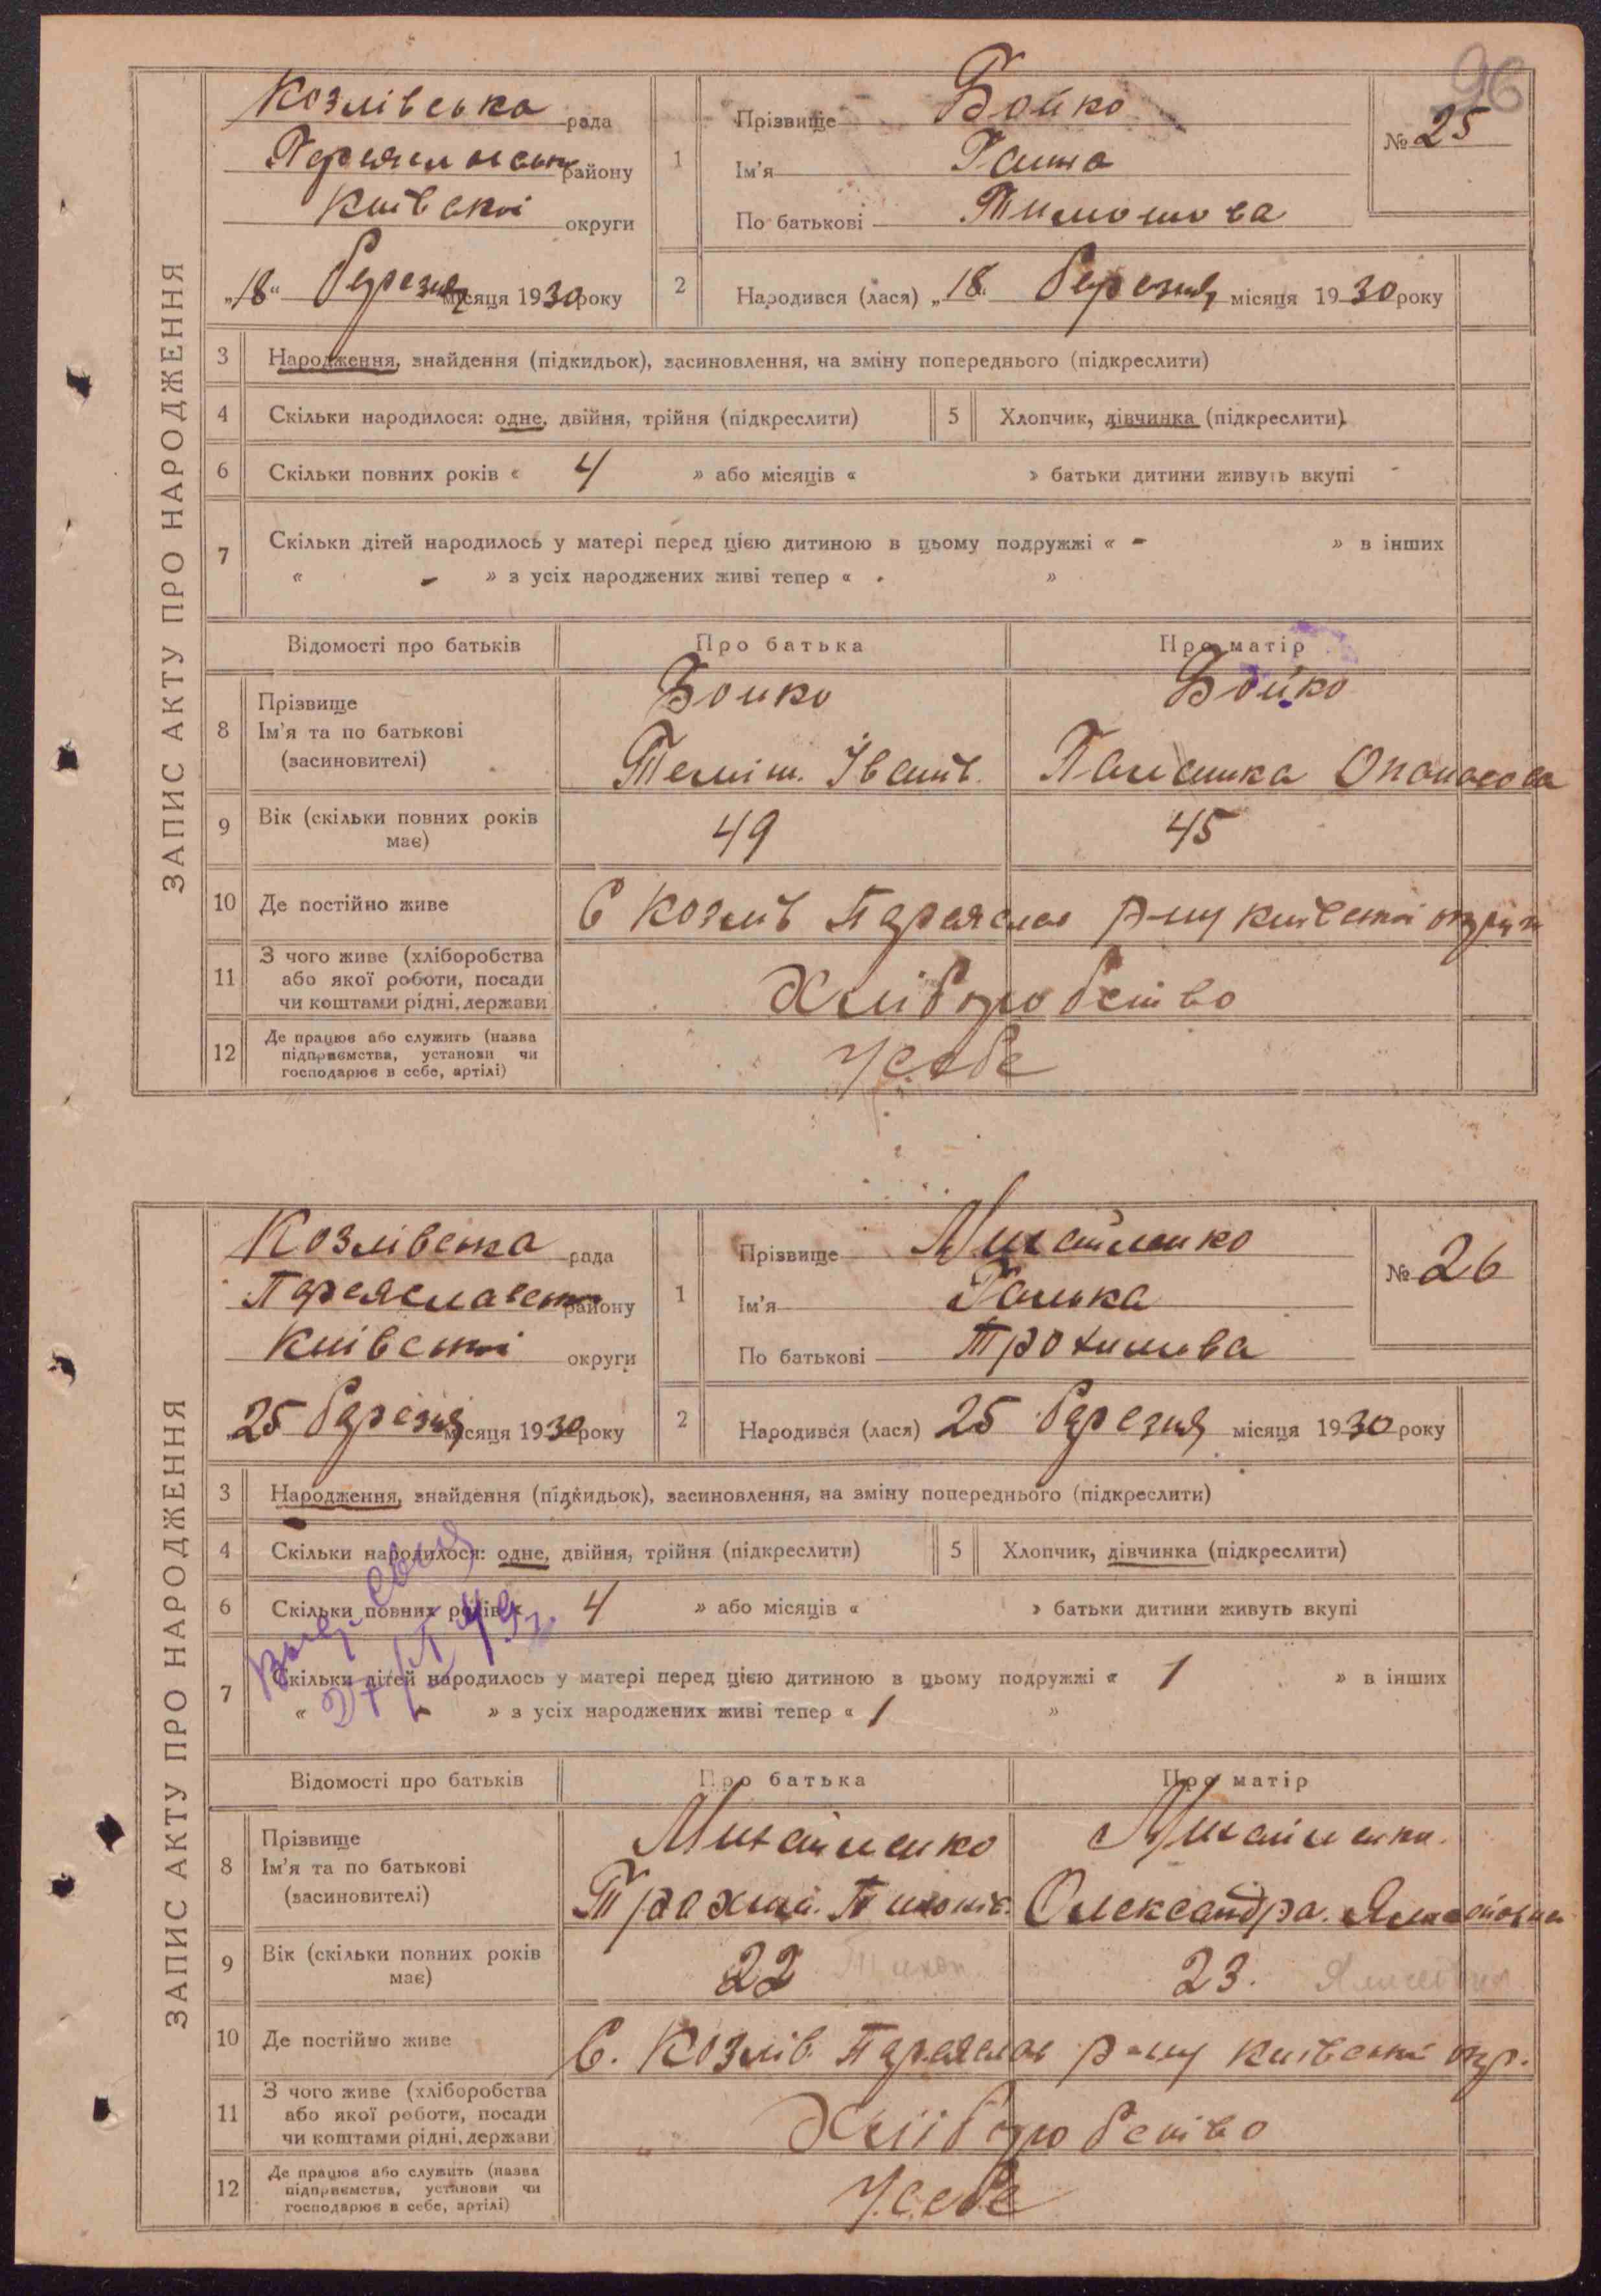 96
ЗАПИС АКТУ ПРО НАРОДЖЕННЯ
Козлівська рада
району
Київскої округи
„18“ березня місяця 1930 року
1
Прізвище Бойко
Ім'я Ганна
По батькові Тимошова
№ 25
2
Народився (лася) „18“ березня місяця 1930 року
3 Народження, знайдення (підкидьок), засиновлення, на зміну попереднього (підкреслити)
4 Скільки народилося: одне, двійня, трійня (підкреслити)
5 Хлопчик, дівчинка (підкреслити)
6 Скільки повних років « 4 » або місяців « » батьки дитини живуть вкупі -
7 Скільки дітей народилось у матері перед цією дитиною в цьому подружжі « - » в інших
« - » з усіх народжених живі тепер « - »
Відомості про батьків Про батька Про матір
8 Прізвище
Ім'я та по батькові
(засиновителі)
Бойко
Іванів.
Бойко
Опанасова
9 Вік (скільки повних років має)
49
45
10 Де постійно живе
С Козлів Переяслав р-ну київської округи
11 З чого живе (хліборобства
або якої роботи, посади
чи коштами рідні, держави)
Хліборобство
12 Де працює або служить (назва
підприємства, установи чи
господарює в себе, артілі)
У себе
ЗАПИС АКТУ ПРО НАРОДЖЕННЯ
Козлівська рада
Переяславськ району
Київської округи
25 березня місяця 1930 року
1
Прізвище Михайленко
Ім'я Галька
По батькові Трохимова
№ 26
2
Народився (лася) 25 березня місяця 1930 року
3 Народження, знайдення (підкидьок), засиновлення, на зміну попереднього (підкреслити)
4 Скільки народилося: одне, двійня, трійня (підкреслити)
5 Хлопчик, дівчинка (підкреслити)
6 Скільки повних років « 4 » або місяців « » батьки дитини живуть вкупі
7 Скільки дітей народилось у матері перед цією дитиною в цьому подружжі « 1 » в інших
« - » з усіх народжених живі тепер « 1 »
Відомості про батьків Про батька Про матір
8 Прізвище
Ім'я та по батькові
(засиновителі)
Михайленко
Трохим.
Михайленко.
Олександра.
9 Вік (скільки повних років має)
22
23.
10 Де постійно живе
С. Козлів Переяслав р-ну київської окр.
11 З чого живе (хліборобства
або якої роботи, посади
чи коштами рідні, держави)
„ Хліборобство
12 Де працює або служить (назва
підприємства, установи чи
господарює в себе, артілі)
У себе